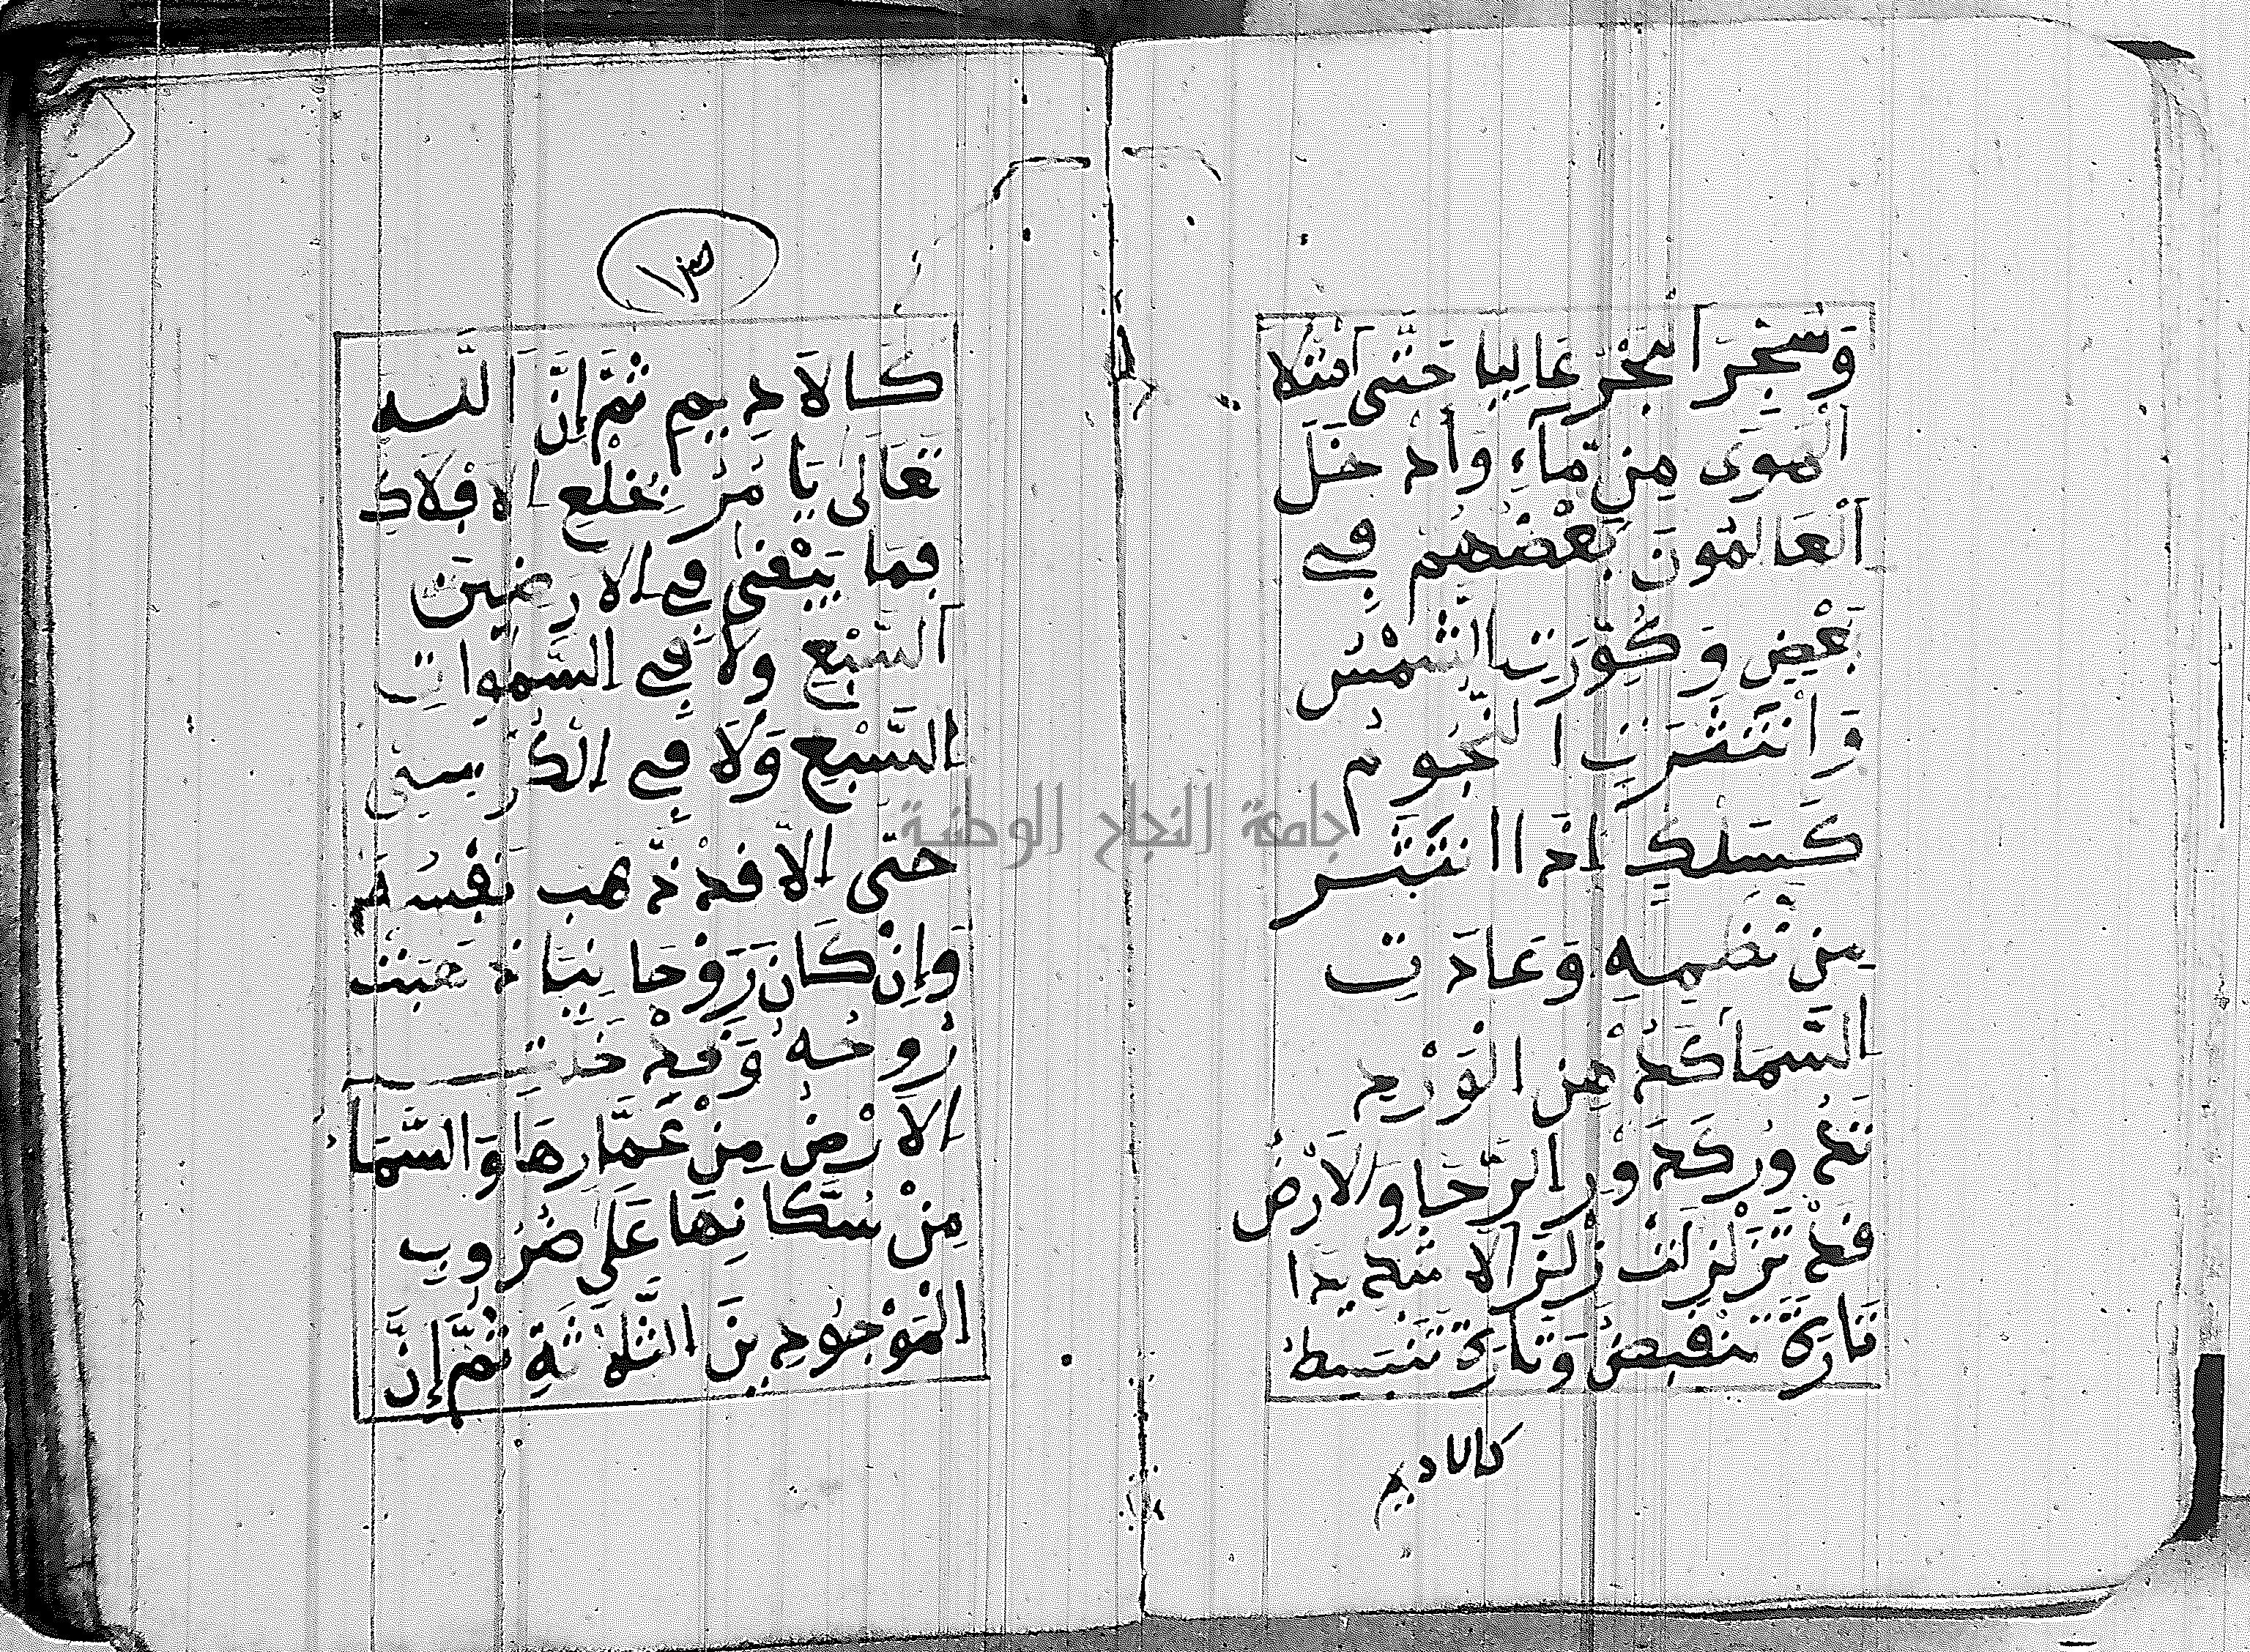 وَسُجِّرَ الْبَحْرُ عَالِيًا حَتَّى امْتَلَا
الْهَوَى مِن مَّاءٍ وَادْخَلَ
الْعَالَمُونَ بَعْضُهُمْ فِي
بَعْضٍ وَكُوِّرَتِ الشَّمْسُ
وَانْتَثَرَتِ النُّجُومُ
كَسِلْكٍ اِذَا انْتَثَر
مِنْ نَضْمِهِ وَعَادَتِ
السَّمَا كَدُهْنِ الْوَرْدِ
تَدُورُ كَدَوْرِ الرَّحَا وَالْاَرْضُ
قَدْ تَزَلْزَلَتْ زِلْزَالًا شَدِيدًا
تَارَةً تَنْقَبِضُ وَتَارَةً تَنْبَسِطُ
كالاديم
١٣
كَالاَدِيمِ ثُمَّ إِنَّ اللَّه
تَعَالَى يَامُرُ بِخَلْعِ الاَفْلَاكِ
فَمَا يَبْقَى فِي الاَرَضِينَ
السَّبْعِ وَلَا فِي السَّمٰوَاتِ
السَّبْعِ وَلَا فِي الْكُرْسِيِّ
حَتَّى الاَّ قَدْ ذَهَبَ نَفْسُهُ
وَإِنْ كَانَ رَوْحَانِيًّا ذَهَبَتْ
رُوحُهُ وَقَدْ خَلَتِ
الاَرْضُ مِنْ عُمَّارِهَا وَالسَّمَاءُ
مِنْ سُكَّانِهَا عَلَى ضُرُوبِ
الْمَوْجُودِينَ الثَّلَاثَةِ ثُمَّ إِنَّ
جامعة النجاح الوطنية